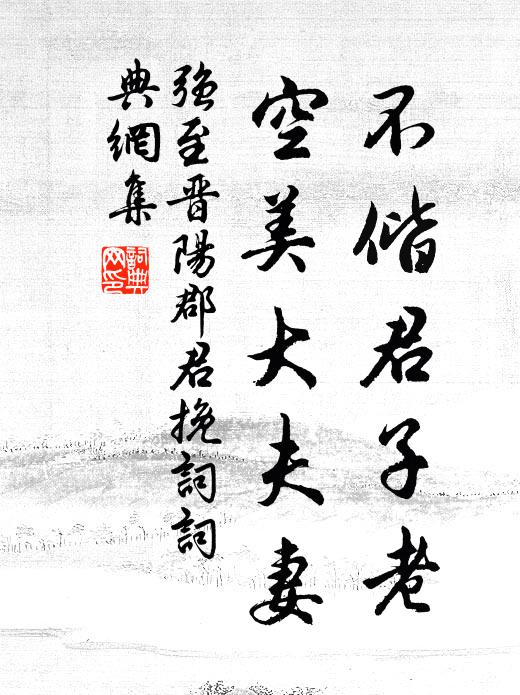 不偕君子老
空美大夫妻
強至晋陽郡君挽詞詞
典網集
詞典
网印